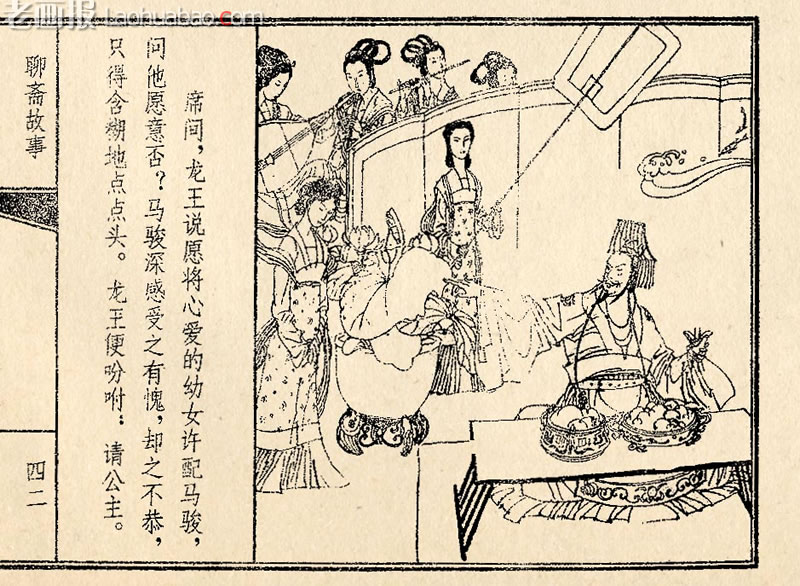 老画报 www.laohuabao.com
聊斋故事
席间，龙王说愿将心爱的幼女许配马骏，
问他愿意否？马骏深感受之有愧，却之不恭，
只得含糊地点点头。龙王便吩咐：请公主。
四二